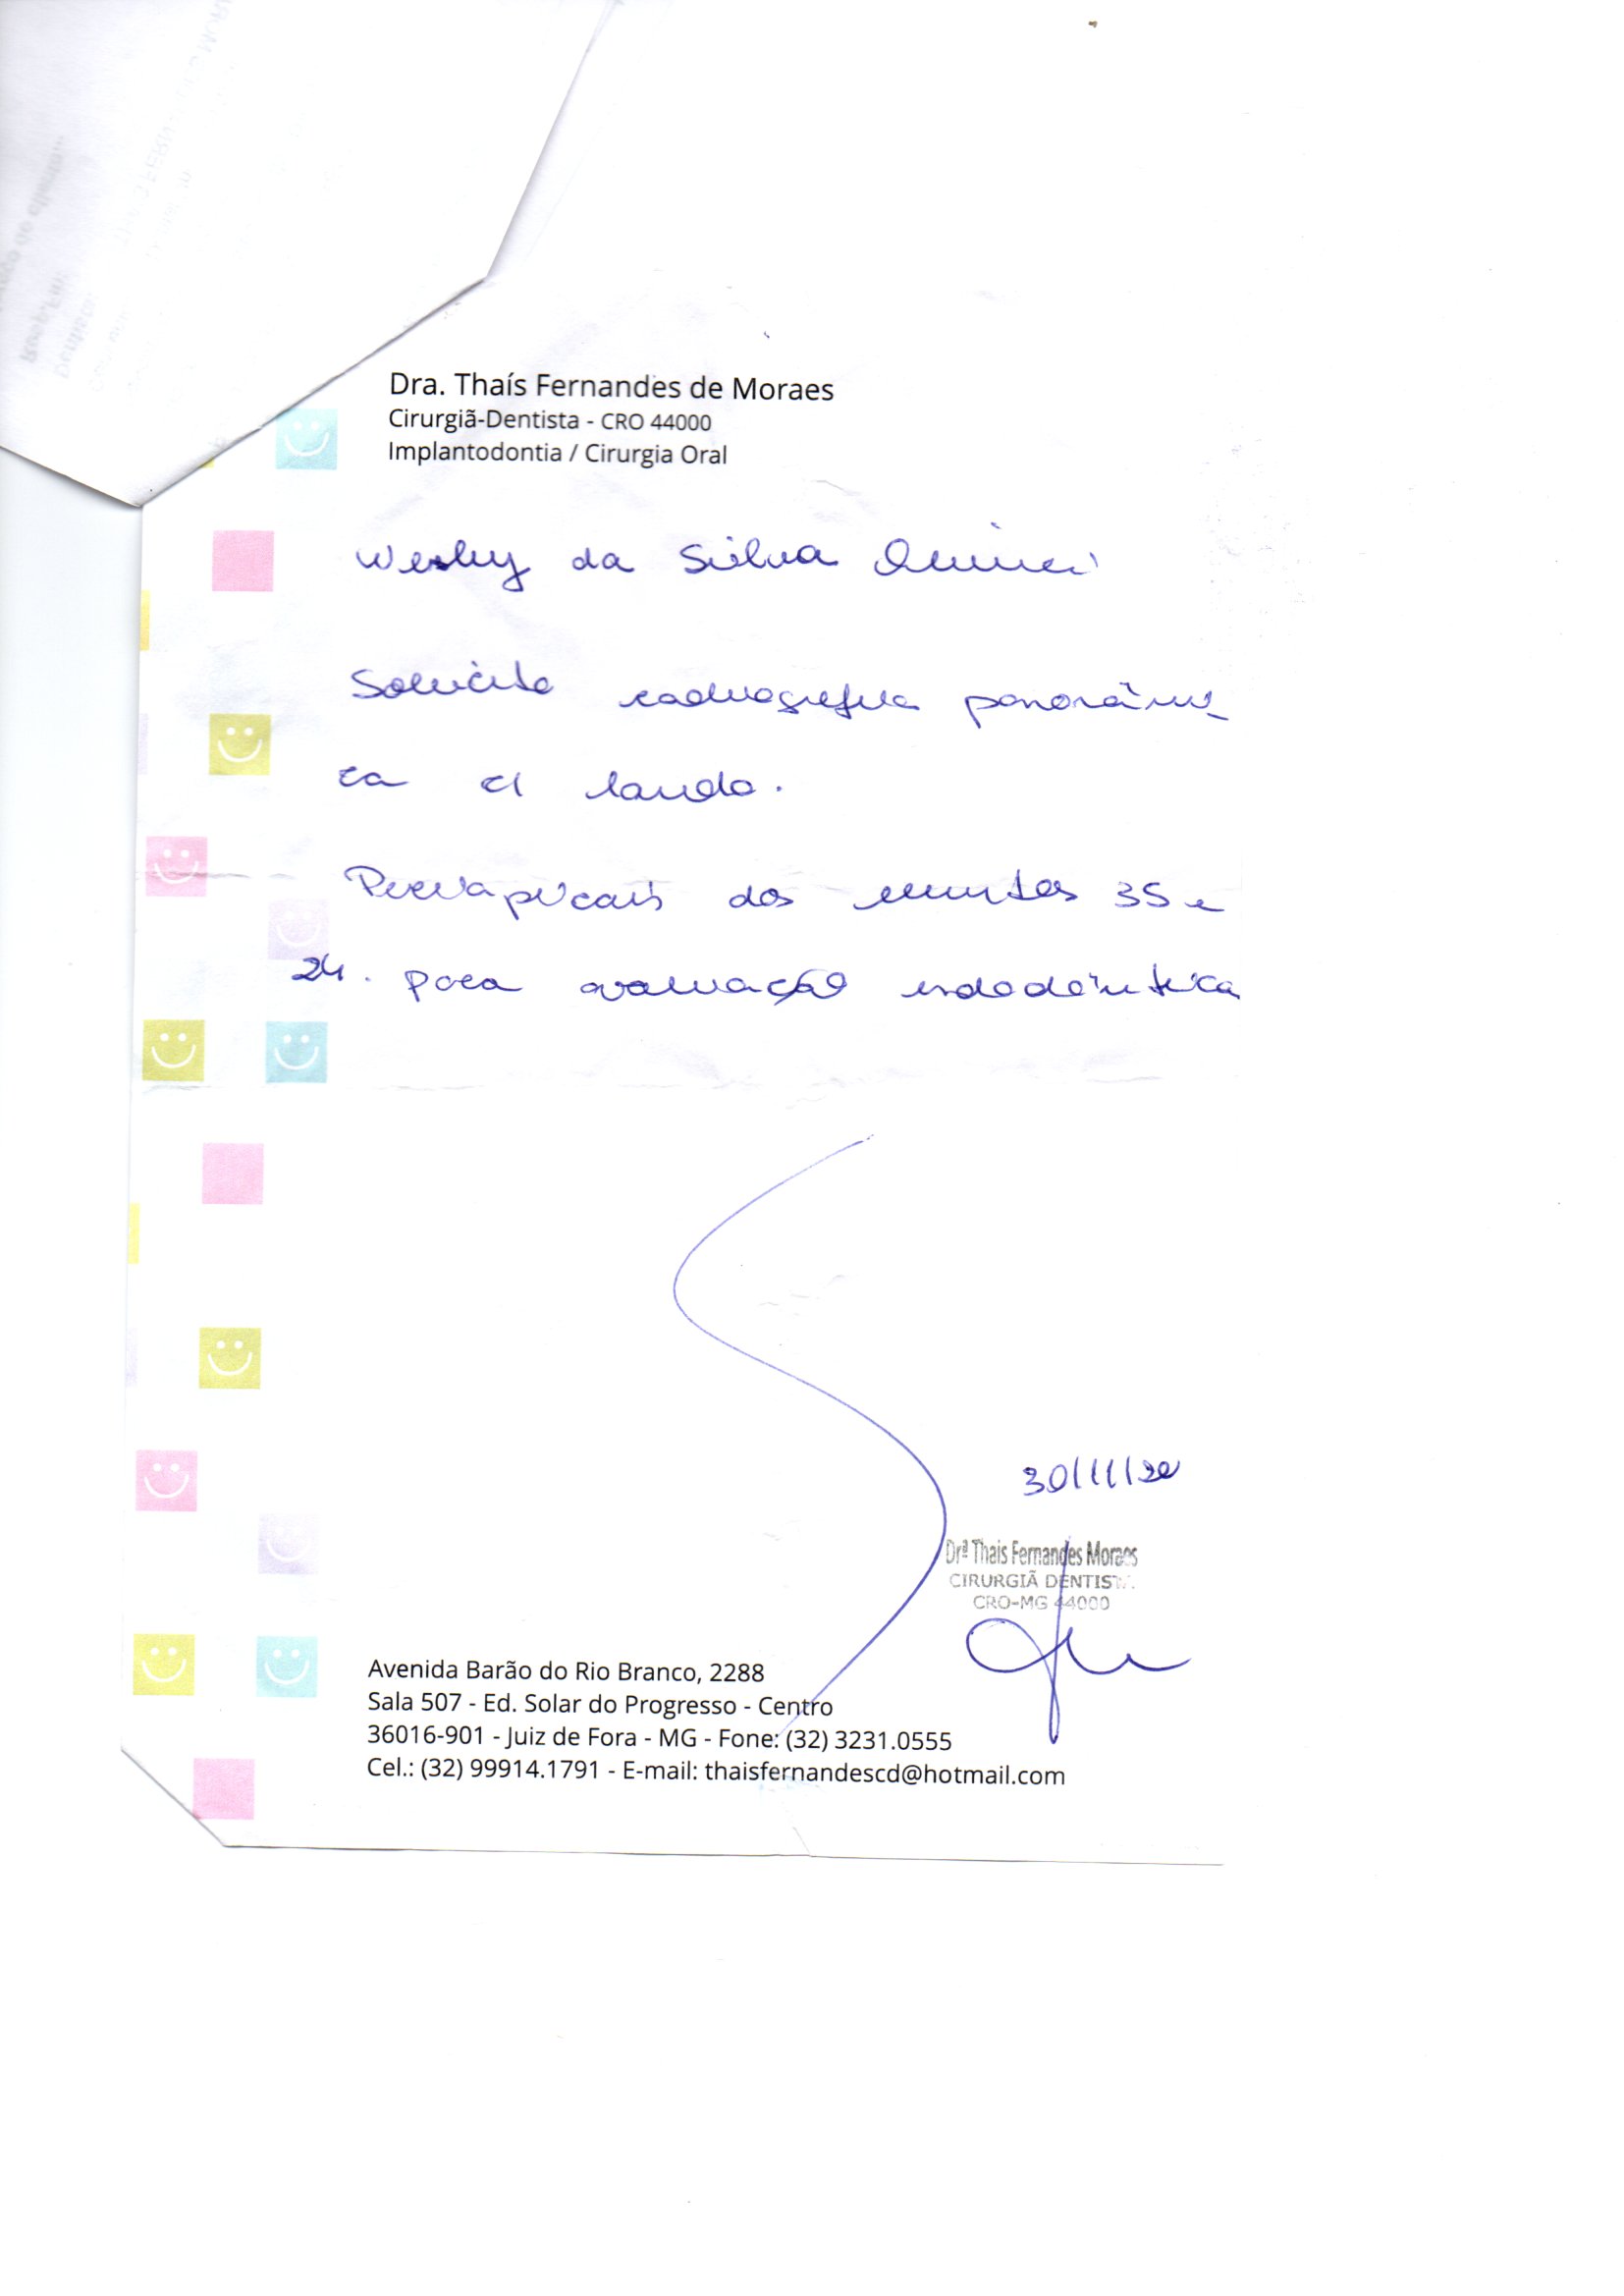 Dra. Thaís Fernandes de Moraes
Cirurgiã-Dentista - CRO 44000
Implantodontia / Cirurgia Oral
Wesley da Silva
Solicito radiografia panorâmi_
ca c/ laudo.
Periapicais dos 35 e
24. para avaliação endodôntica
30/11/20
Drª Thais Fernandes Moraes
CIRURGIÃ DENTISTA
CRO-MG 44000
Avenida Barão do Rio Branco, 2288
Sala 507 - Ed. Solar do Progresso - Centro
36016-901 - Juiz de Fora - MG - Fone: (32) 3231.0555
Cel.: (32) 99914.1791 - E-mail: thaisfernandescd@hotmail.com